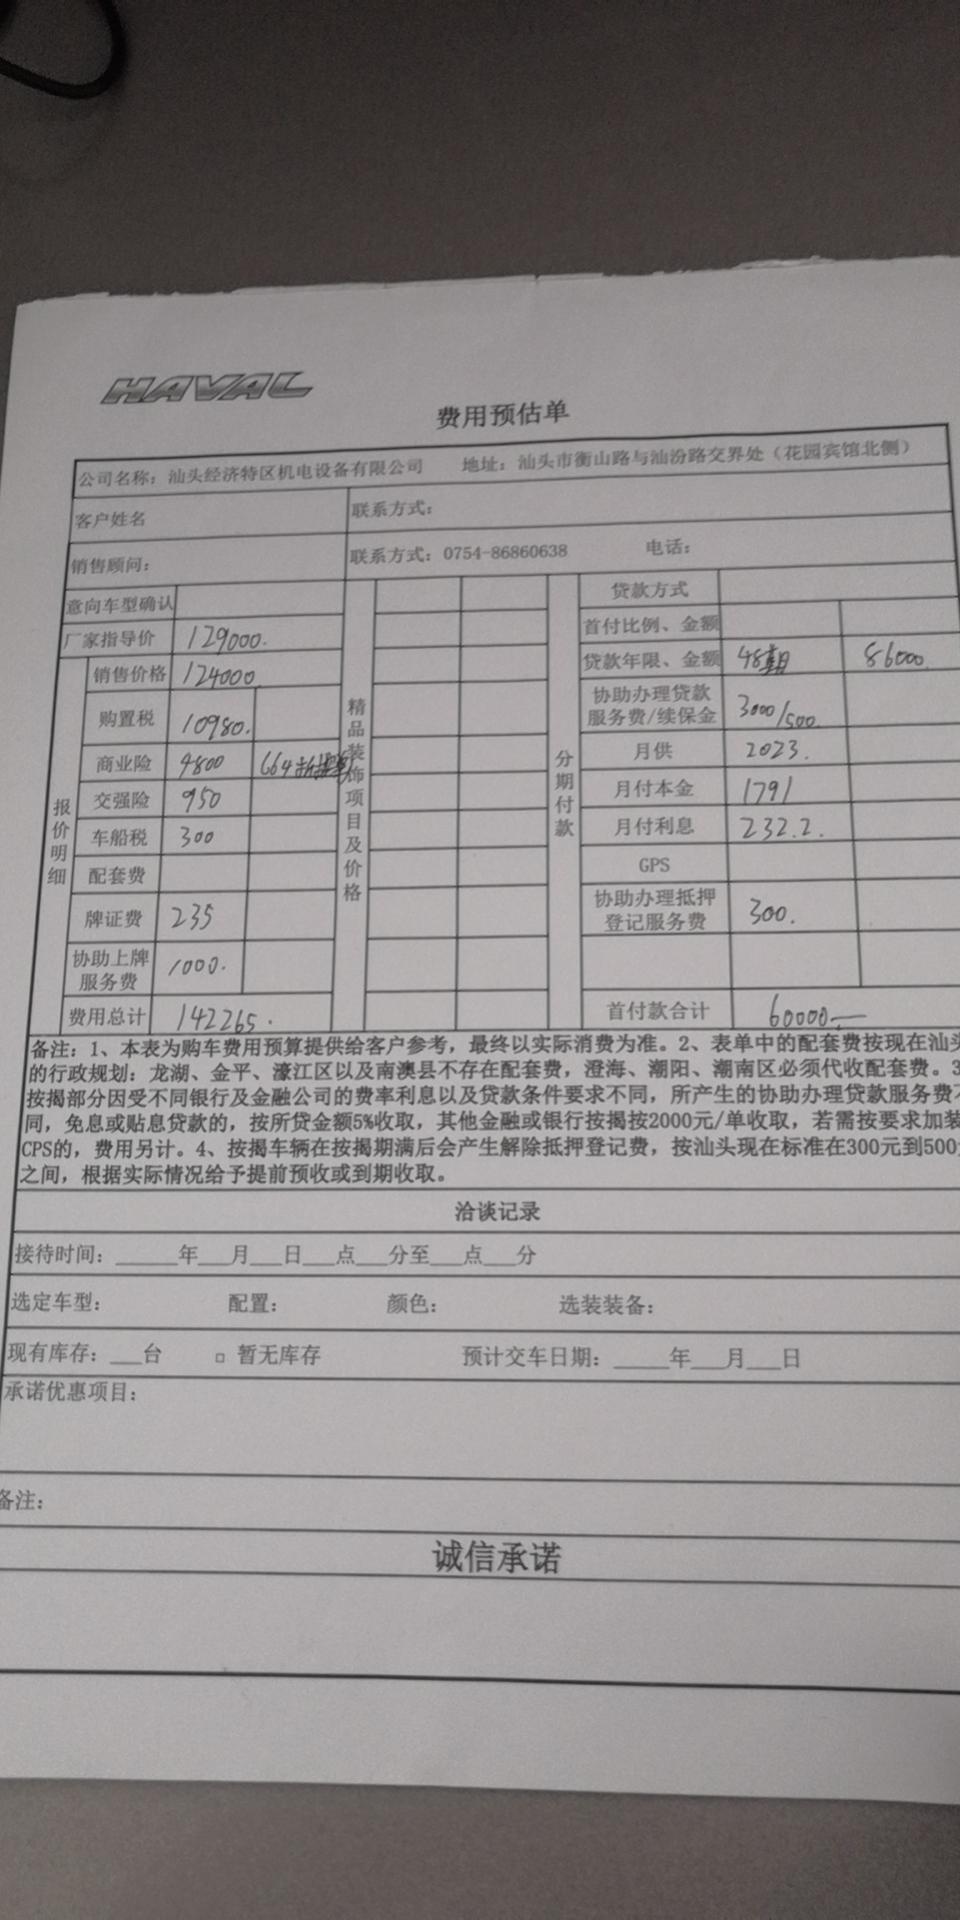 HAVAL
费用预估单
公司名称：汕头经济特区机电设备有限公司 地址：汕头市衡山路与汕汾路交界处（花园宾馆北侧）
客户姓名 联系方式：
销售顾问： 联系方式：0754-86860638 电话：
意向车型确认 贷款方式
厂家指导价 129000. 首付比例、金额
销售价格 124000 贷款年限、金额 48期 86000.
购置税 10980. 协助办理贷款服务费/续保金 3000/500.
商业险 4800 664 月供 2023.
交强险 950 月付本金 1791
车船税 300 月付利息 232.2.
配套费 GPS
牌证费 235 协助办理抵押登记服务费 300.
协助上牌服务费 1000.
费用总计 142265. 首付款合计 60000.—
报价明细
精品装饰项目及价格
分期付款
备注：1、本表为购车费用预算提供给客户参考，最终以实际消费为准。2、表单中的配套费按现在汕头
的行政规划：龙湖、金平、濠江区以及南澳县不存在配套费，澄海、潮阳、潮南区必须代收配套费。3
按揭部分因受不同银行及金融公司的费率利息以及贷款条件要求不同，所产生的协助办理贷款服务费不
同，免息或贴息贷款的，按所贷金额5%收取，其他金融或银行按揭按2000元/单收取，若需按要求加装
CPS的，费用另计。4、按揭车辆在按揭期满后会产生解除抵押登记费，按汕头现在标准在300元到500元
之间，根据实际情况给予提前预收或到期收取。
洽谈记录
接待时间：______年___月___日___点___分至___点___分
选定车型： 配置： 颜色： 选装装备：
现有库存：___台 □ 暂无库存 预计交车日期：_____年___月___日
承诺优惠项目：
备注：
诚信承诺